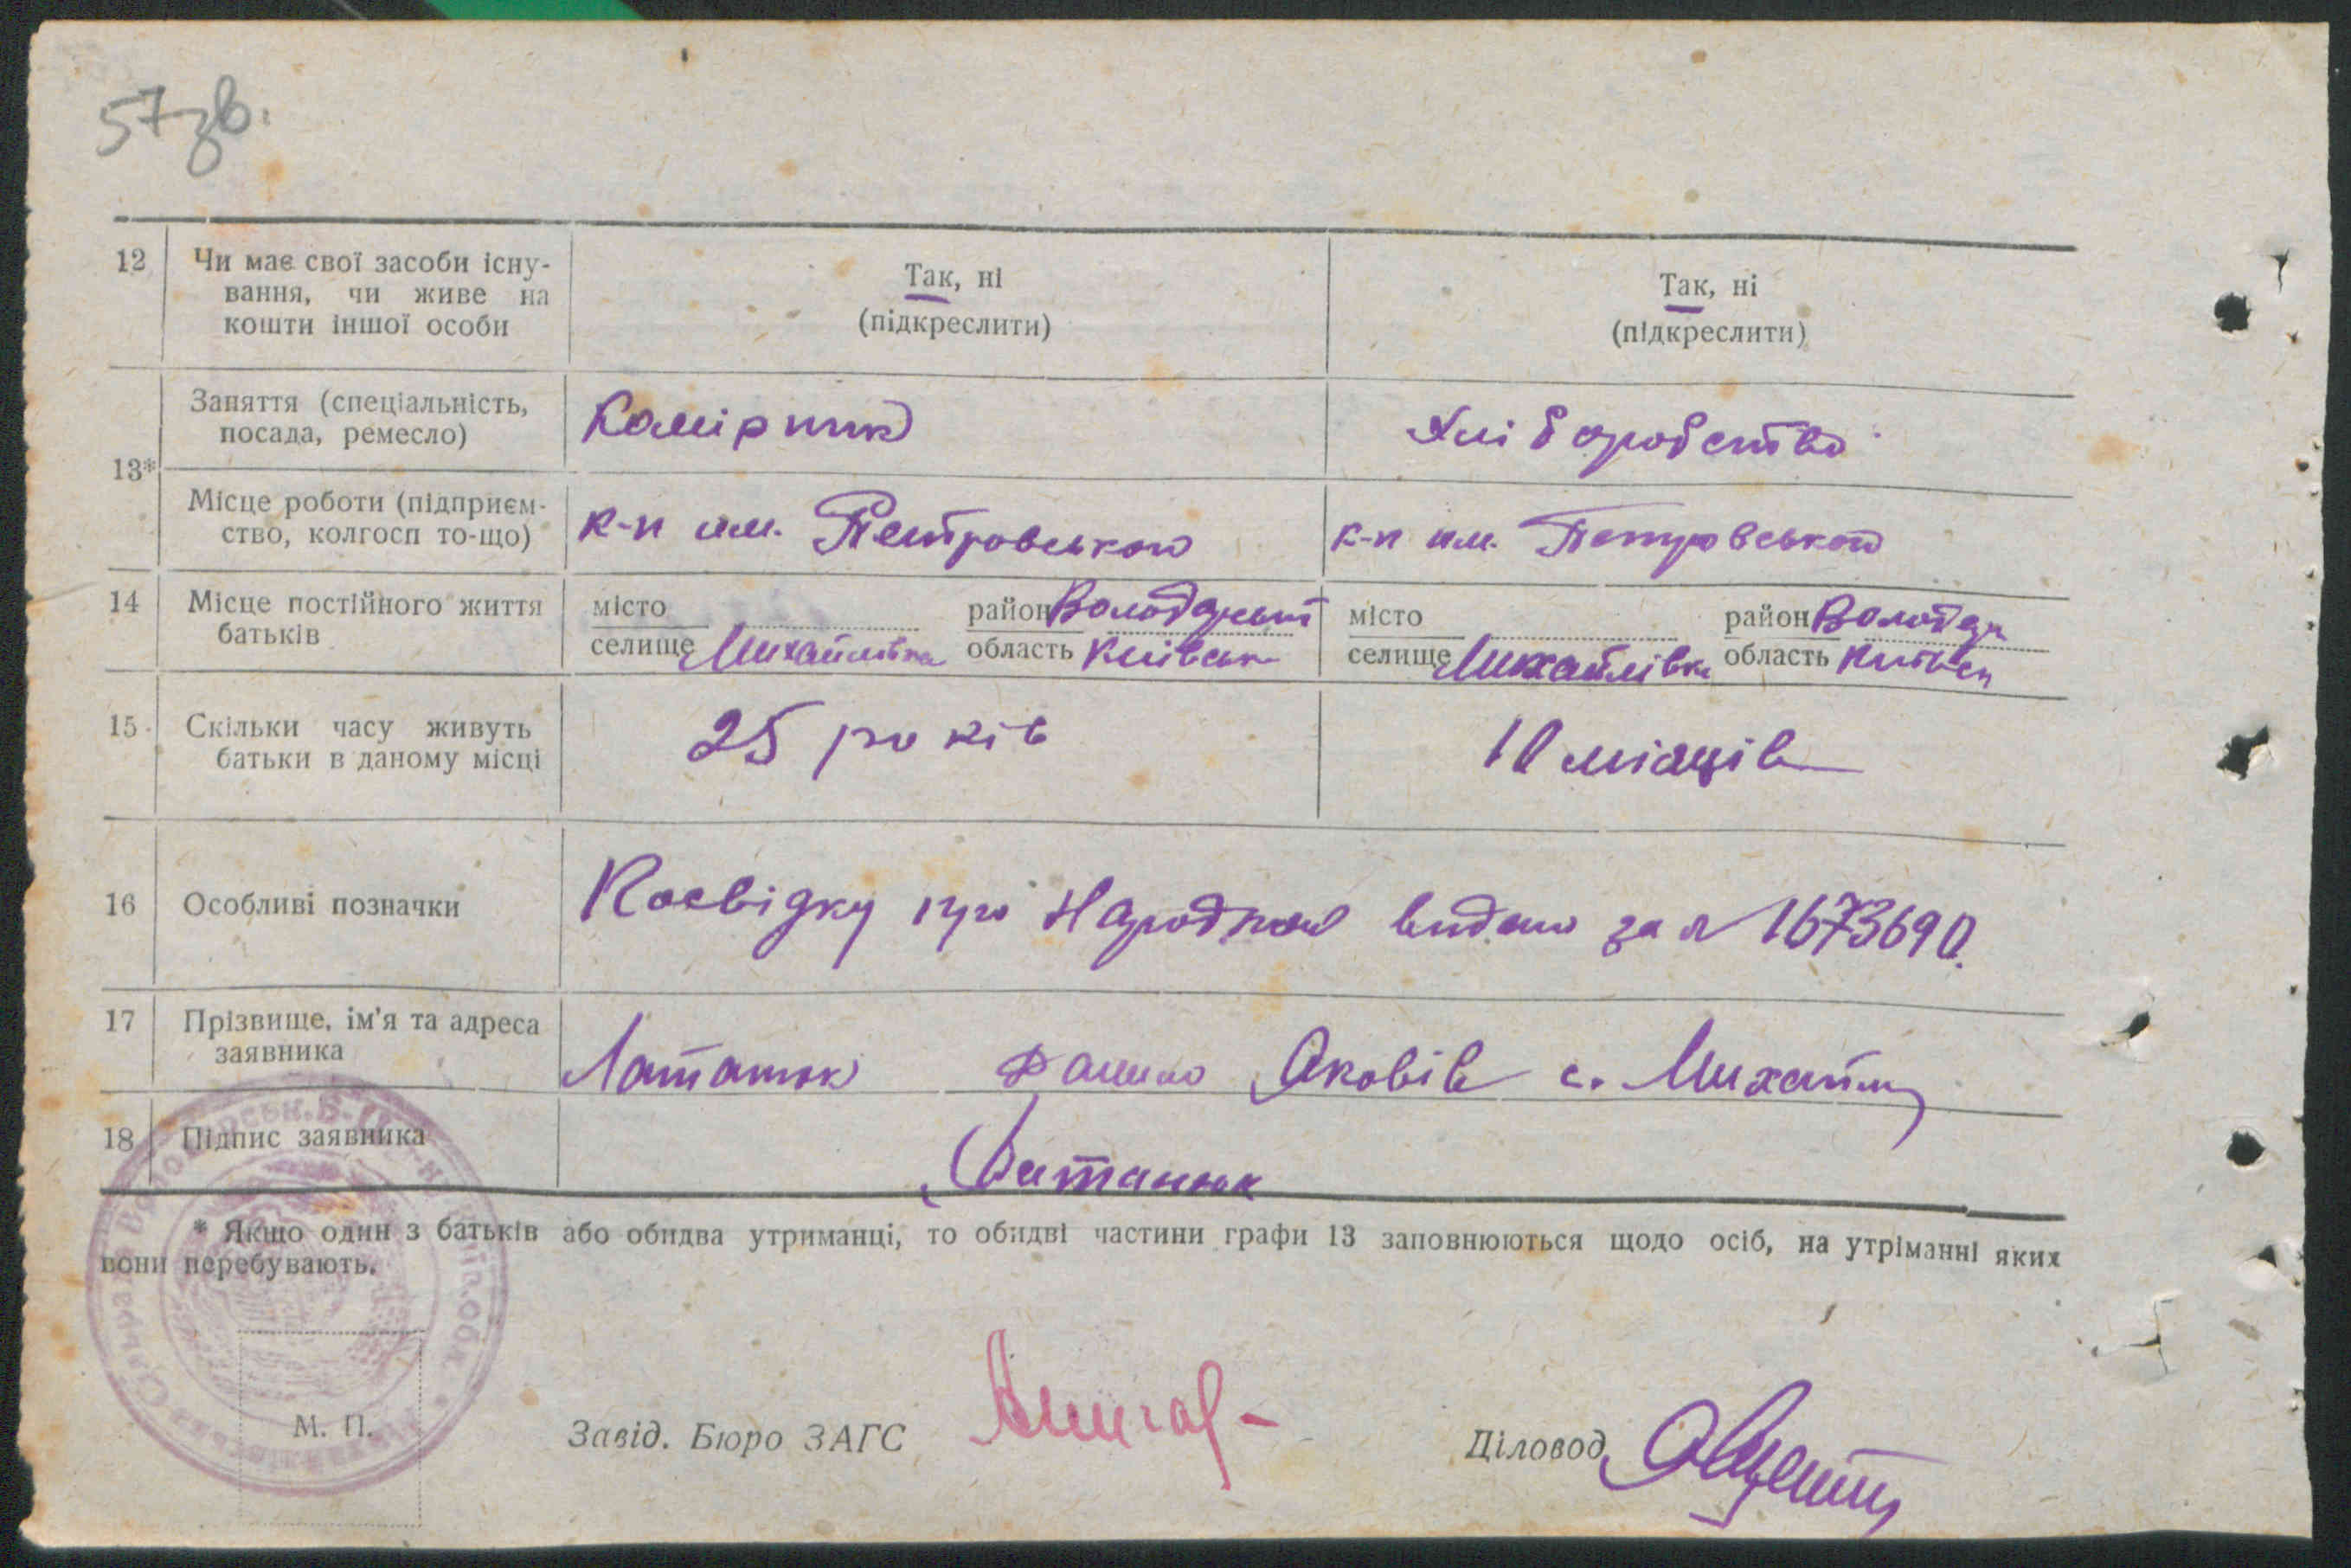 57 зв.
12 Чи має свої засоби існу- Так, ні Так, ні
вання, чи живе на (підкреслити) (підкреслити)
кошти іншої особи
13* Заняття (спеціальність, Комірник Хліборобство
посада, ремесло)
Місце роботи (підприєм- к-п им. Петровського к-п им. Петровського
ство, колгосп то-що)
14 Місце постійного життя місто район Володарський місто район Володар
батьків селище Михайлівка область Київськ селище Михайлівка область Київськ
15 Скільки часу живуть 25 років 10 місяців
батьки в даному місці
16 Особливі позначки Посвідку про Народження видано за № 1673690.
17 Прізвище, ім'я та адреса Латанюк Данило Яковів с. Михайлів
заявника
18 Підпис заявника Латанюк
* Якщо один з батьків або обидва утриманці, то обидві частини графи 13 заповнюються щодо осіб, на утріманні яких
вони перебувають.
М. П. Завід. Бюро ЗАГС Діловод